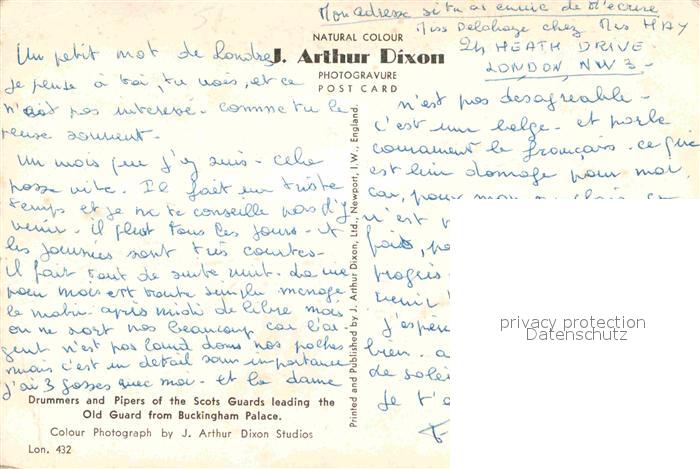 Mon adresse si tu as envie de m'écrire
Miss Delahaye chez Mrs HAY
24 HEATH DRIVE
LONDON NW3-
NATURAL COLOUR
J. Arthur Dixon
PHOTOGRAVURE
POST CARD
Un petit mot de Londres
je pense à toi, tu vois, et ce
n'est pas intéressé. comme tu le
penses souvent.
Un mois que j'y suis - cela
passe vite. Il fait un triste
temps et je ne te conseille pas d'y
venir. il pleut tous les jours. et
les journées sont très courtes-
il fait tout de suite nuit. La vie
pour moi est toute simple ménage
le matin. après midi de libre mais
on ne sort pas beaucoup car l'ar-
gent n'est pas lourd dans nos poches
mais c'est un détail sans importance
j'ai 3 gosses avec moi. et la dame
n'est pas désagréable-
c'est une belge. et parle
couramment le français. ce que
est bien dommage pour moi.
car, pour moi
n'est p
progrès
venir
j'espère
bien. a
de soleil
Je t'
Printed and Published by J. Arthur Dixon, Ltd., Newport, I.W., England.
Drummers and Pipers of the Scots Guards leading the
Old Guard from Buckingham Palace.
Colour Photograph by J. Arthur Dixon Studios
Lon. 432
privacy protection
Datenschutz